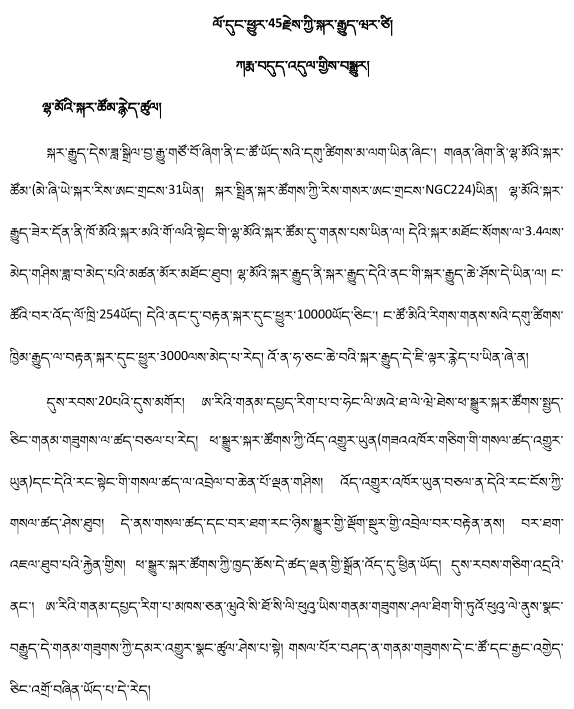 ལོ་དུང་ཕྱུར་45རྗེས་ཀྱི་སྐར་རྒྱུད་ཕྲར་ཙི།
ཀརྨ་བདུད་འདུལ་གྱིས་བསྒྱུར།
ལྷ་མོའི་སྐར་ཚོམ་རྙེད་ཚུལ།
སྐར་རྒྱུད་དེས་ཟླ་སྒྲིལ་བྱ་རྒྱུ་གཙོ་བོ་ཞིག་ནི་ང་ཚོ་ཡོད་སའི་དགུ་ཚིགས་མ་ལག་ཡིན་ཞིང་། གཞན་ཞིག་ནི་ལྷ་མོའི་སྐར་
ཚོམ་(མེ་ཞི་ཡེ་སྐར་རིས་ཨང་གྲངས་31ཡིན། སྐར་སྤྲིན་སྐར་ཚོགས་ཀྱི་རིས་གསར་ཨང་གྲངས་NGC224)ཡིན། ལྷ་མོའི་སྐར་
རྒྱུད་ཟེར་དོན་ནི་ཁོ་མོའི་སྐར་མའི་གོ་ལའི་སྟེང་གི་ལྷ་མོའི་སྐར་ཚོམ་དུ་གནས་པས་ཡིན་ལ། དེའི་སྐར་མཐོང་སོགས་ལ་3.4ལས་
མེད་གཤིས་ཟླ་བ་མེད་པའི་མཚན་མོར་མཐོང་ཐུབ། ལྷ་མོའི་སྐར་རྒྱུད་ནི་སྐར་རྒྱུད་དེའི་ནང་གི་སྐར་རྒྱུད་ཆེ་ཤོས་དེ་ཡིན་ལ། ང་
ཚོའི་བར་འོད་ལོ་ཁྲི་254ཡོད། དེའི་ནང་དུ་བརྟན་སྐར་དུང་ཕྱུར་10000ཡོད་ཅིང་། ང་ཚོ་མིའི་རིགས་གནས་སའི་དགུ་ཚིགས་
ཁྱིམ་རྒྱུད་ལ་བརྟན་སྐར་དུང་ཕྱུར་3000ལས་མེད་པ་རེད། འོ་ན་ཧ་ཅང་ཆེ་བའི་སྐར་རྒྱུད་དེ་ཇི་ལྟར་རྙེད་པ་ཡིན་ཞེ་ན།
དུས་རབས་20པའི་དུས་མགོར། ཨ་རིའི་གནམ་དཔྱད་རིག་པ་བ་ཧེང་ལི་ཨའེ་ཐ་ལེ་ཝེ་ཐེས་ཕ་སྒྱུར་སྐར་ཚོགས་སྤྱད་
ཅིང་གནམ་གཟུགས་ལ་ཚད་བཅལ་པ་རེད། ཕ་སྒྱུར་སྐར་ཚོགས་ཀྱི་འོད་འགྱུར་ཡུན(གཟའ་འཁོར་གཅིག་གི་གསལ་ཚད་འགྱུར་
ཡུན)དང་དེའི་རང་སྟེང་གི་གསལ་ཚད་ལ་འབྲེལ་བ་ཆེན་པོ་ལྡན་གཤིས། འོད་འགྱུར་འཁོར་ཡུན་བཅལ་ན་དེའི་རང་ངོས་ཀྱི་
གསལ་ཚད་ཤེས་ཐུབ། དེ་ནས་གསལ་ཚད་དང་བར་ཐག་རང་ཉིས་སྒྱུར་གྱི་ལྡོག་སྡུར་གྱི་འབྲེལ་བར་བརྟེན་ནས། བར་ཐག་
འཇལ་ཐུབ་པའི་རྐྱེན་གྱིས། ཕ་སྒྱུར་སྐར་ཚོགས་ཀྱི་ཁྱད་ཆོས་དེ་ཚད་ལྡན་གྱི་སྒྲོན་འོད་དུ་ཕྱིན་ཡོད། དུས་རབས་གཅིག་འདྲའི་
ནང་། ཨ་རིའི་གནམ་དཔྱད་རིག་པ་མཁས་ཅན་ཝུའེ་སི་ཐོ་སི་ལི་ཕུའུ་ཡིས་གནམ་གཟུགས་ཤལ་ཐིག་གི་ཏུའོ་ཕུའུ་ལེ་ནུས་སྣང་
བརྒྱུད་དེ་གནམ་གཟུགས་ཀྱི་དམར་འགྱུར་སྣང་ཚུལ་ཤེས་པ་སྟེ། གསལ་པོར་བཤད་ན་གནམ་གཟུགས་དེ་ང་ཚོ་དང་རྒྱང་འགྱེད་
ཅིང་འགྲོ་བཞིན་ཡོད་པ་དེ་རེད།